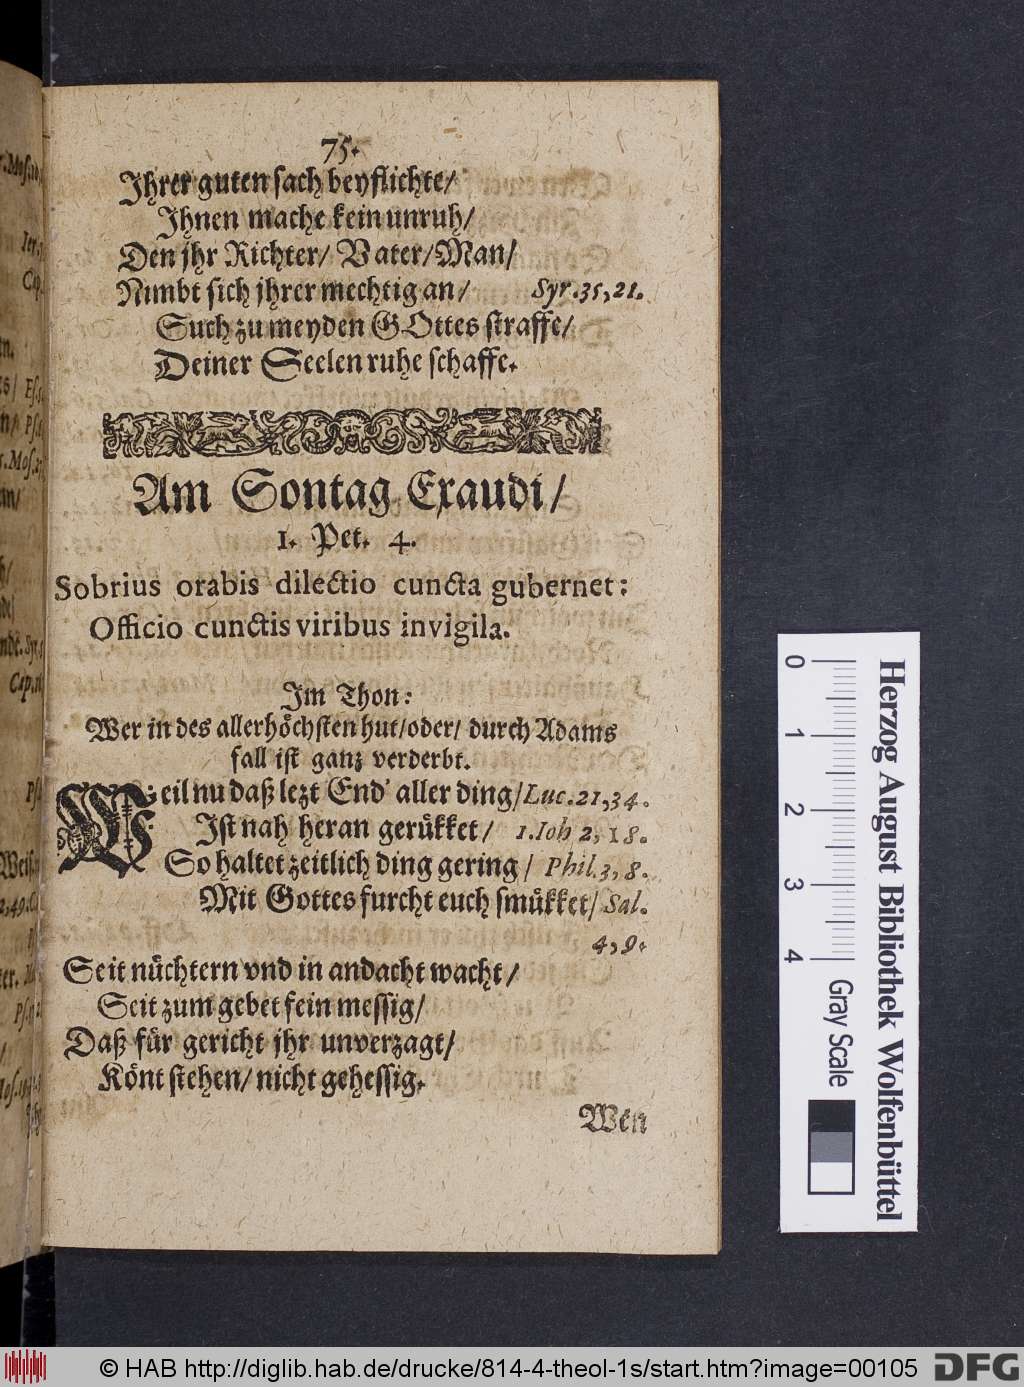 75.
Ihrer guten sach beypflichte/
Ihnen mache kein unruh/
Den jhr Richter/ Vater/ Man/
Nimbt sich jhrer mechtig an/ Syr. 35, 21.
Such zu meyden GOttes straffe/
Deiner Seelen ruhe schaffe.
Am Sontag Exaudi/
1. Pet. 4.
Sobrius orabis dilectio cuncta gubernet:
Officio cunctis viribus invigila.
Im Thon:
Wer in des allerhöchsten hut/ oder/ durch Adams
fall ist ganz verderbt.
Weil nu daß lezt End' aller ding/ Luc. 21, 34.
Ist nah heran gerükket/ 1. Ioh 2, 18.
So haltet zeitlich ding gering/ Phil. 3, 8.
Mit Gottes furcht euch smükket/ Sal.
4, 9.
Seit nüchtern vnd in andacht wacht/
Seit zum gebet fein messig/
Daß für gericht jhr unverzagt/
Könt stehen/ nicht gehessig.
Wen
0 1 2 3 4
Gray Scale
Herzog August Bibliothek Wolfenbüttel
© HAB http://diglib.hab.de/drucke/814-4-theol-1s/start.htm?image=00105
DFG